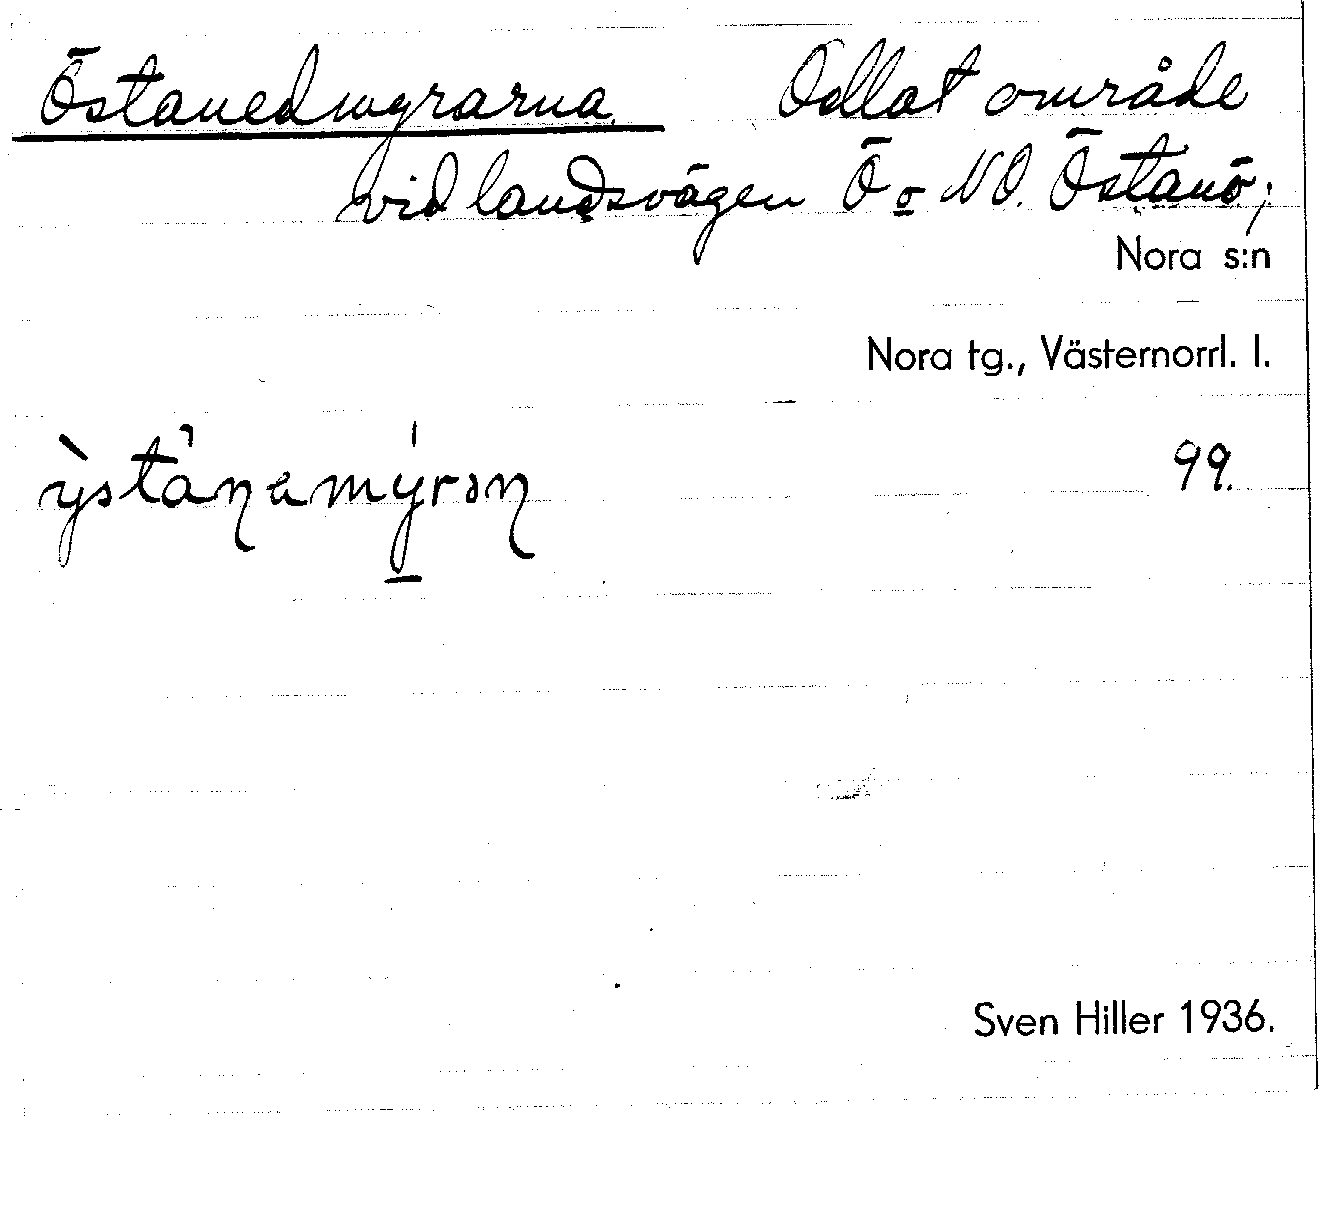 Östanedmyrarna. Odlat område
vid landsvägen Ö o NO. Östanö;
Nora s:n
Nora tg., Västernorrl. l.
99.
Sven Hiller 1936.